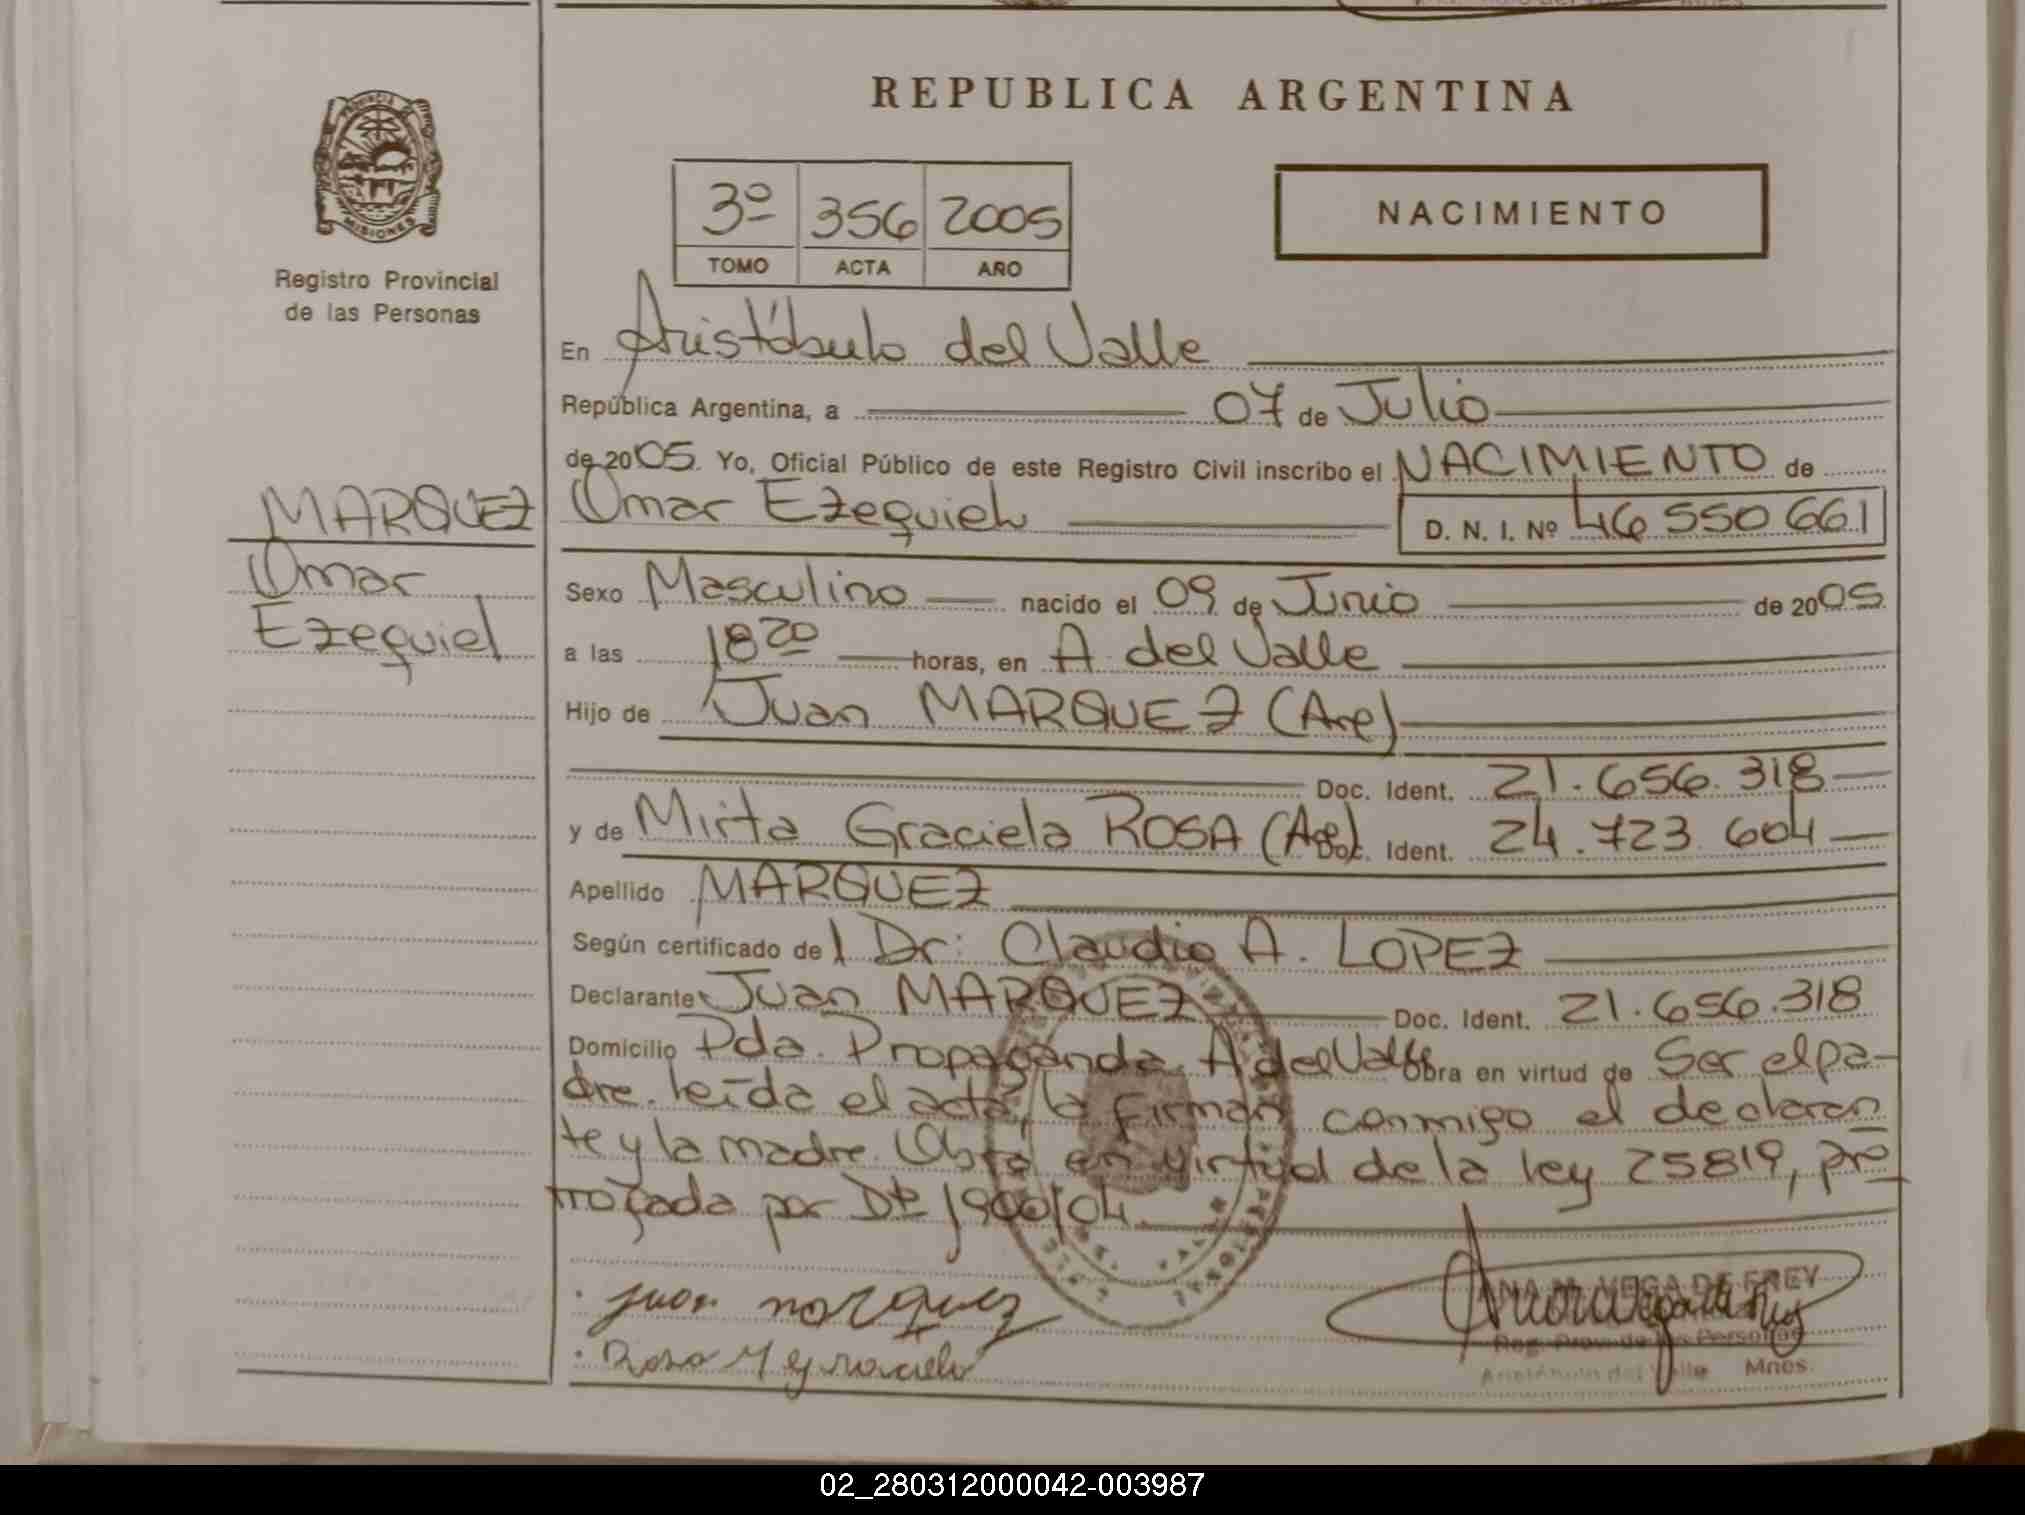 REPUBLICA ARGENTINA
PROVINCIA DE
MISIONES
Registro Provincial
de las Personas
3º 356 2005
TOMO ACTA AÑO
NACIMIENTO
En Aristóbulo del Valle
República Argentina, a 07 de Julio
de 2005. Yo, Oficial Público de este Registro Civil inscribo el NACIMIENTO de
MARQUEZ
Omar
Ezequiel
Omar Ezequiel D. N. I. Nº 46 550 661
Sexo Masculino nacido el 09 de Junio de 2005
a las 18 20 horas, en A. del Valle
Hijo de Juan MARQUEZ (Arg)
Doc. Ident. 21.656.318
y de Mirta Graciela ROSA (Arg) Doc. Ident. 24.723.604
Apellido MARQUEZ
Según certificado del Dr: Claudio A. LOPEZ
Declarante Juan MARQUEZ Doc. Ident. 21.656.318
Domicilio Pda. Propaganda A del Valle Obra en virtud de Ser el pa-
dre. leída el acta, la firman conmigo el declaran
te y la madre. Obra en virtud de la ley 25819, pro
rrogada por Dto 1900/04.
Juan marquez
Rosa M graciela
ANA M. VEGA DE FREY
Reg. Prov. de las Personas
Aristóbulo del Valle Mnes.
02_280312000042-003987